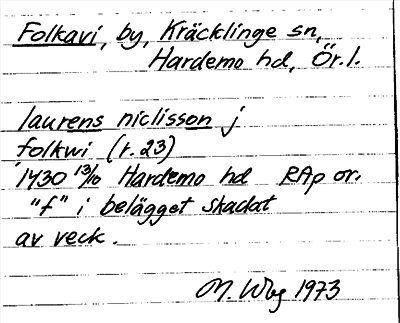 Folkavi, by, Kräcklinge sn,
Hardemo hd, Ör. l.
laurens niclisson j
folkwi (r. 23)
1430 13/10 Hardemo hd RAp or.
"f" i belägget skadat
av veck.
M. Wbg 1973